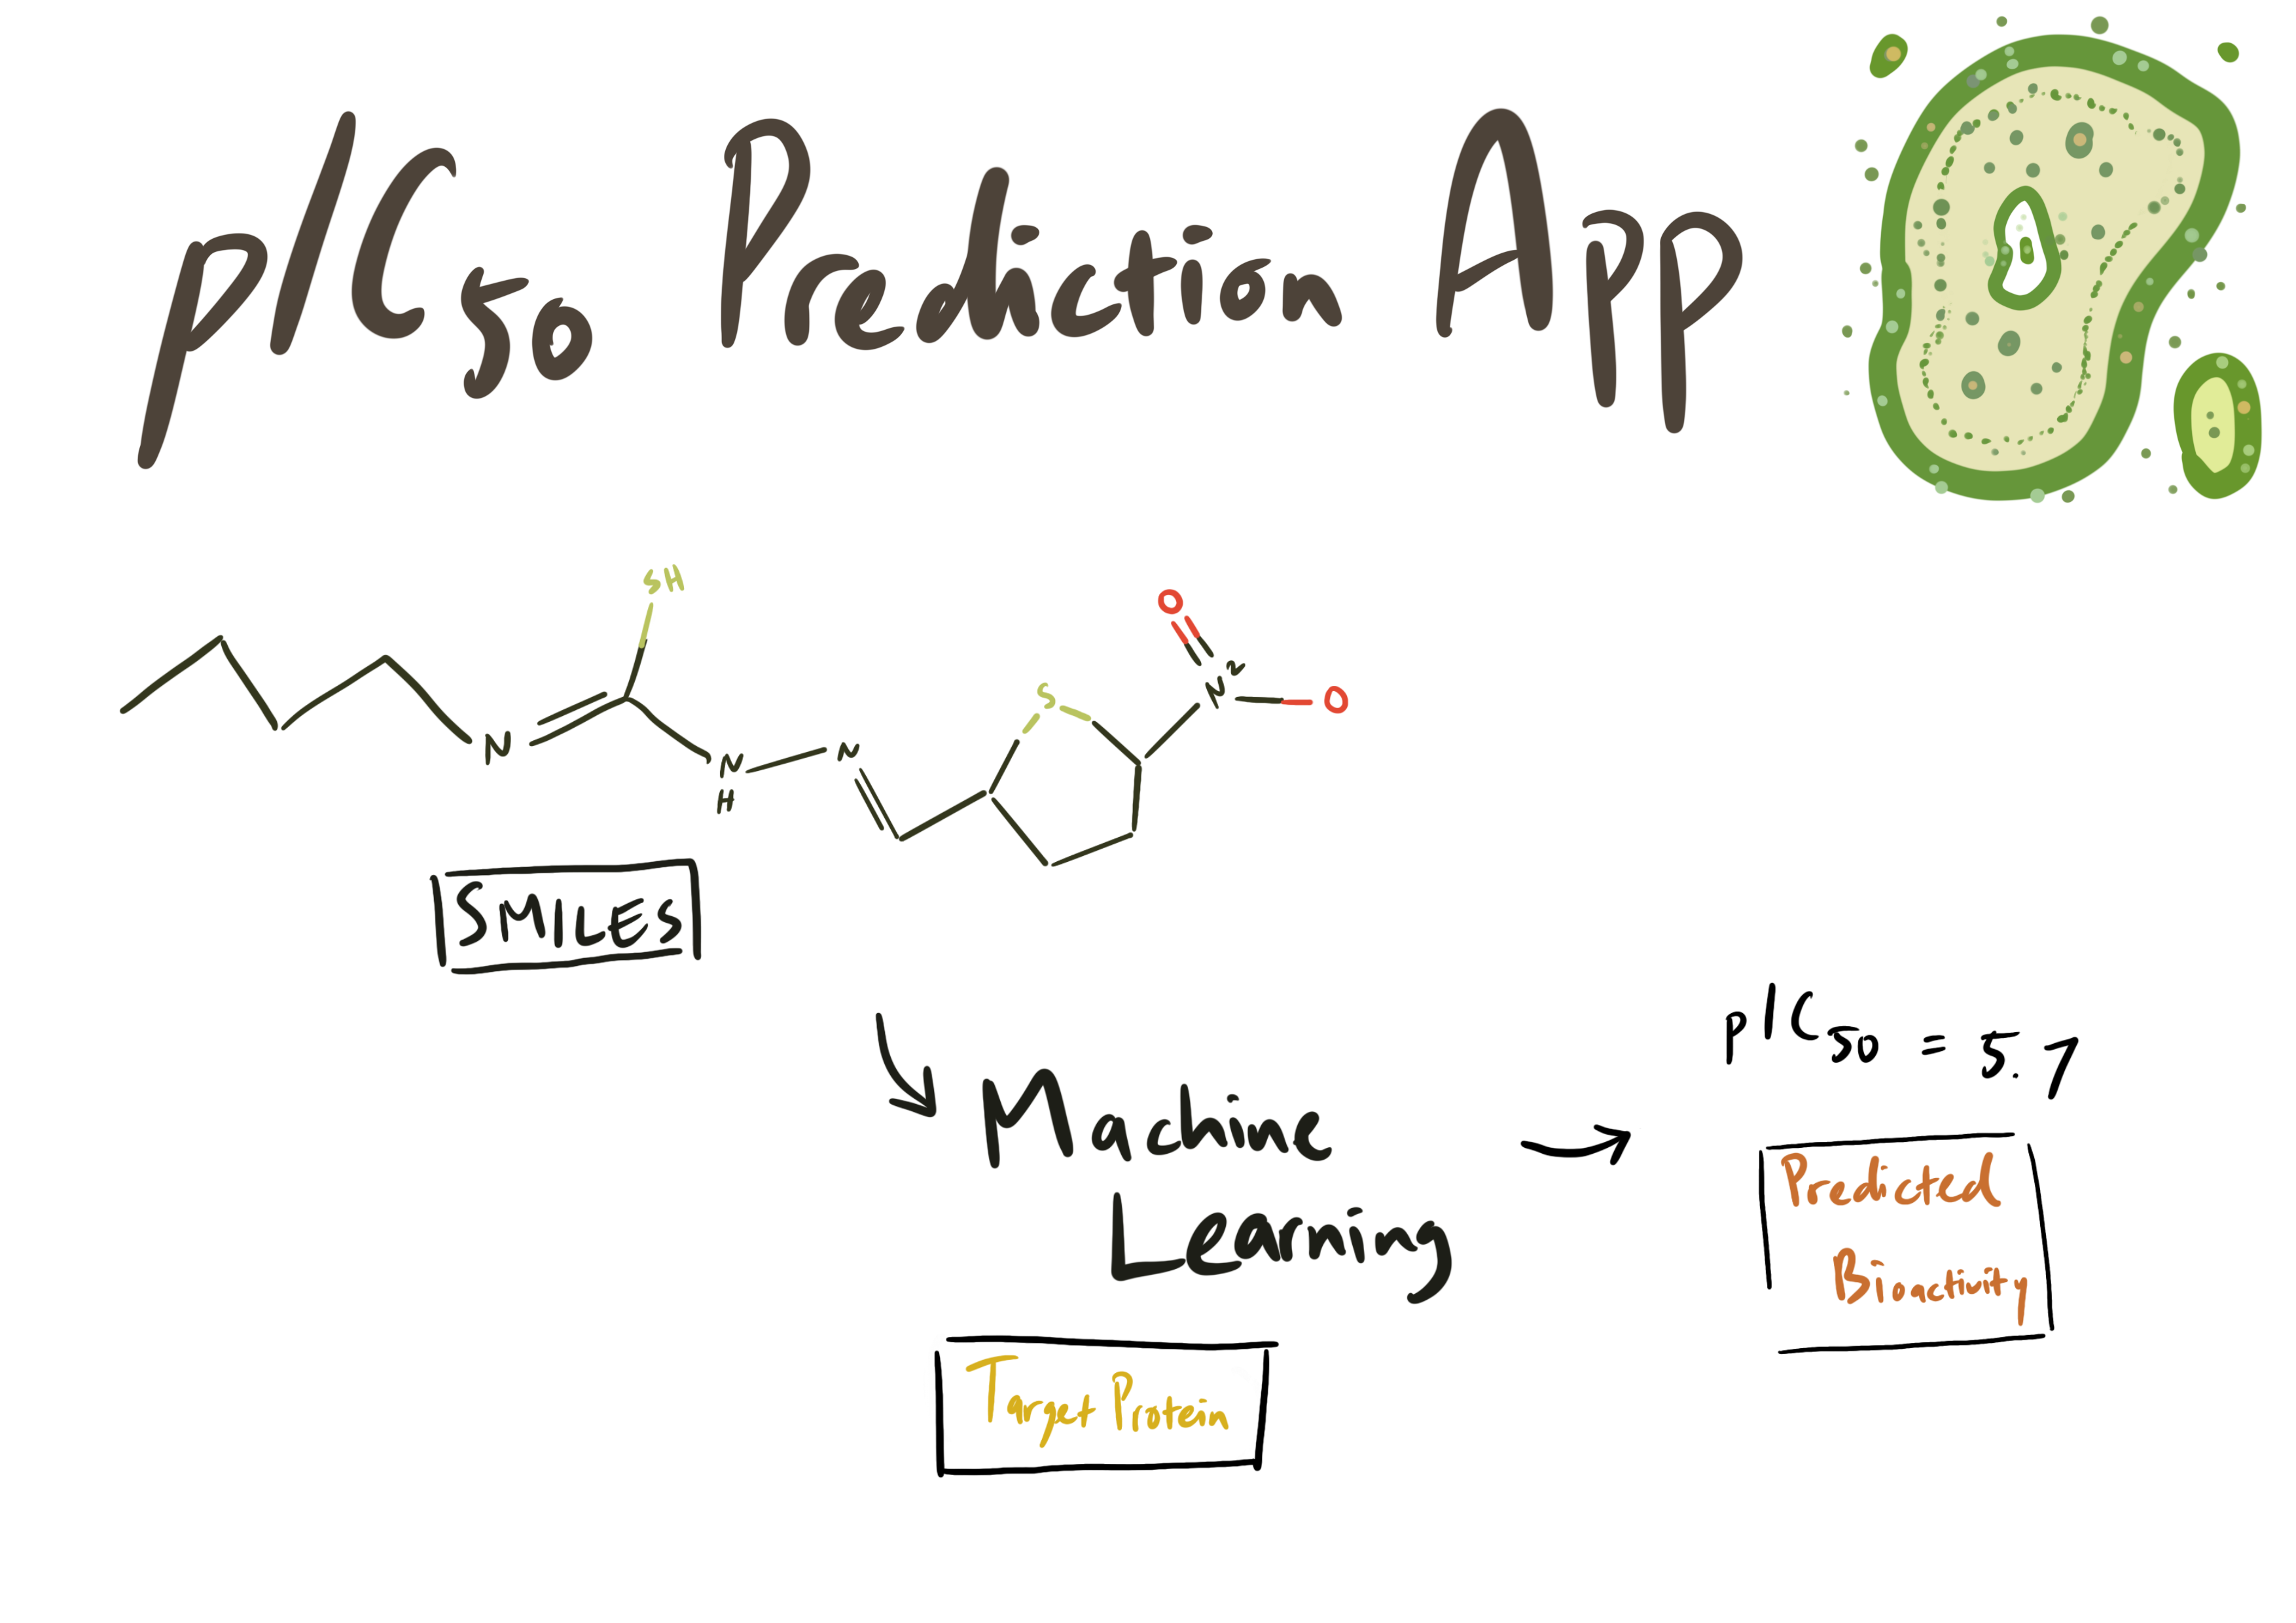 pIC50 Prediction App
SH
O
N
N
H
N
S
N2
O
SMILES
Machine
Learning
Target Protein
pIC50 = 5.7
Predicted
Bioactivity